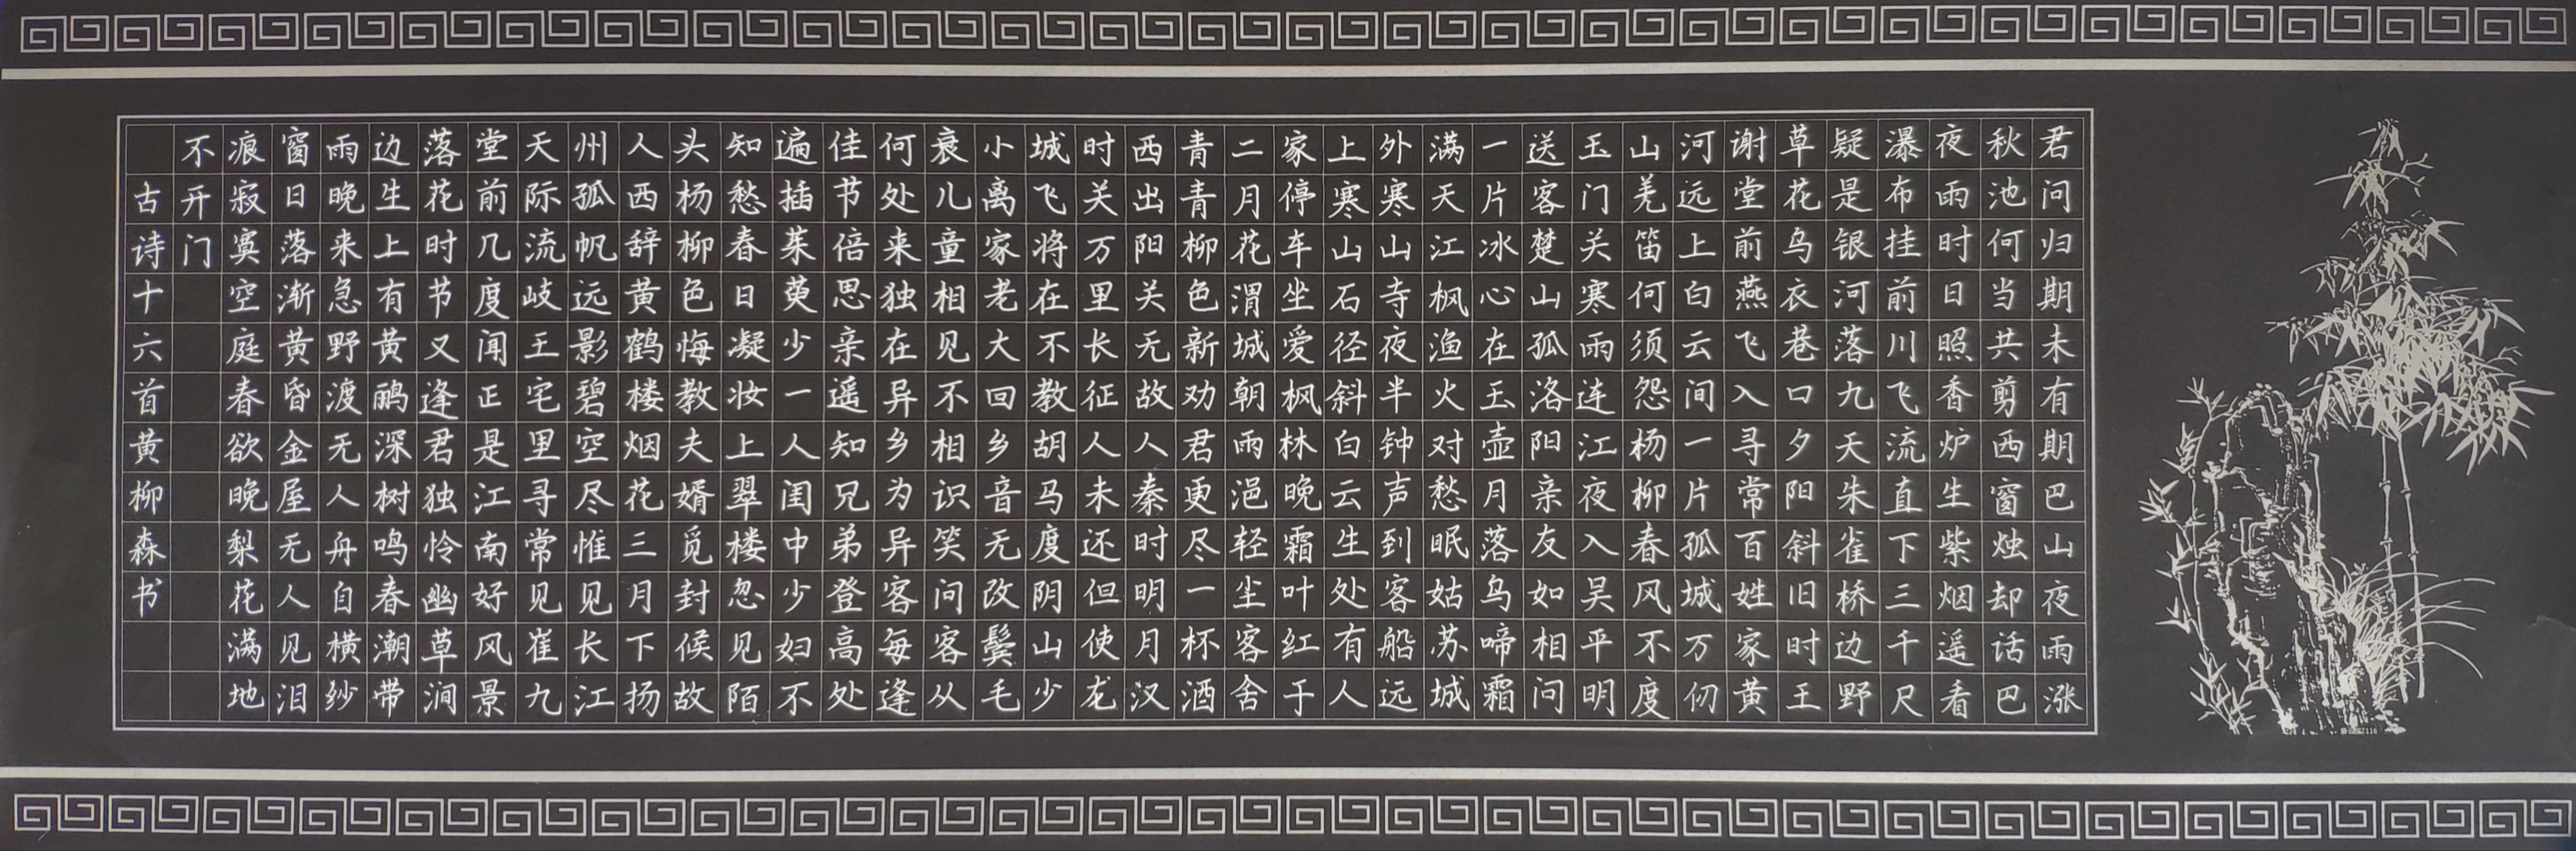 君问归期未有期巴山夜雨涨
秋池何当共剪西窗烛却话巴
夜雨时日照香炉生紫烟遥看
瀑布挂前川飞流直下三千尺
疑是银河落九天朱雀桥边野
草花乌衣巷口夕阳斜旧时王
谢堂前燕飞入寻常百姓家黄
河远上白云间一片孤城万仞
山羌笛何须怨杨柳春风不度
玉门关寒雨连江夜入吴平明
送客楚山孤洛阳亲友如相问
一片冰心在玉壶月落乌啼霜
满天江枫渔火对愁眠姑苏城
外寒山寺夜半钟声到客船远
上寒山石径斜白云生处有人
家停车坐爱枫林晚霜叶红于
二月花渭城朝雨浥轻尘客舍
青青柳色新劝君更尽一杯酒
西出阳关无故人秦时明月汉
时关万里长征人未还但使龙
城飞将在不教胡马度阴山少
小离家老大回乡音无改鬓毛
衰儿童相见不相识笑问客从
何处来独在异乡为异客每逢
佳节倍思亲遥知兄弟登高处
遍插茱萸少一人闺中少妇不
知愁春日凝妆上翠楼忽见陌
头杨柳色悔教夫婿觅封候故
人西辞黄鹤楼烟花三月下扬
州孤帆远影碧空尽惟见长江
天际流岐王宅里寻常见崔九
堂前几度闻正是江南好风景
落花时节又逢君独怜幽草涧
边生上有黄鹂深树鸣春潮带
雨晚来急野渡无人舟自横纱
窗日落渐黄昏金屋无人见泪
痕寂寞空庭春欲晚梨花满地
不开门
古诗十六首黄柳森书